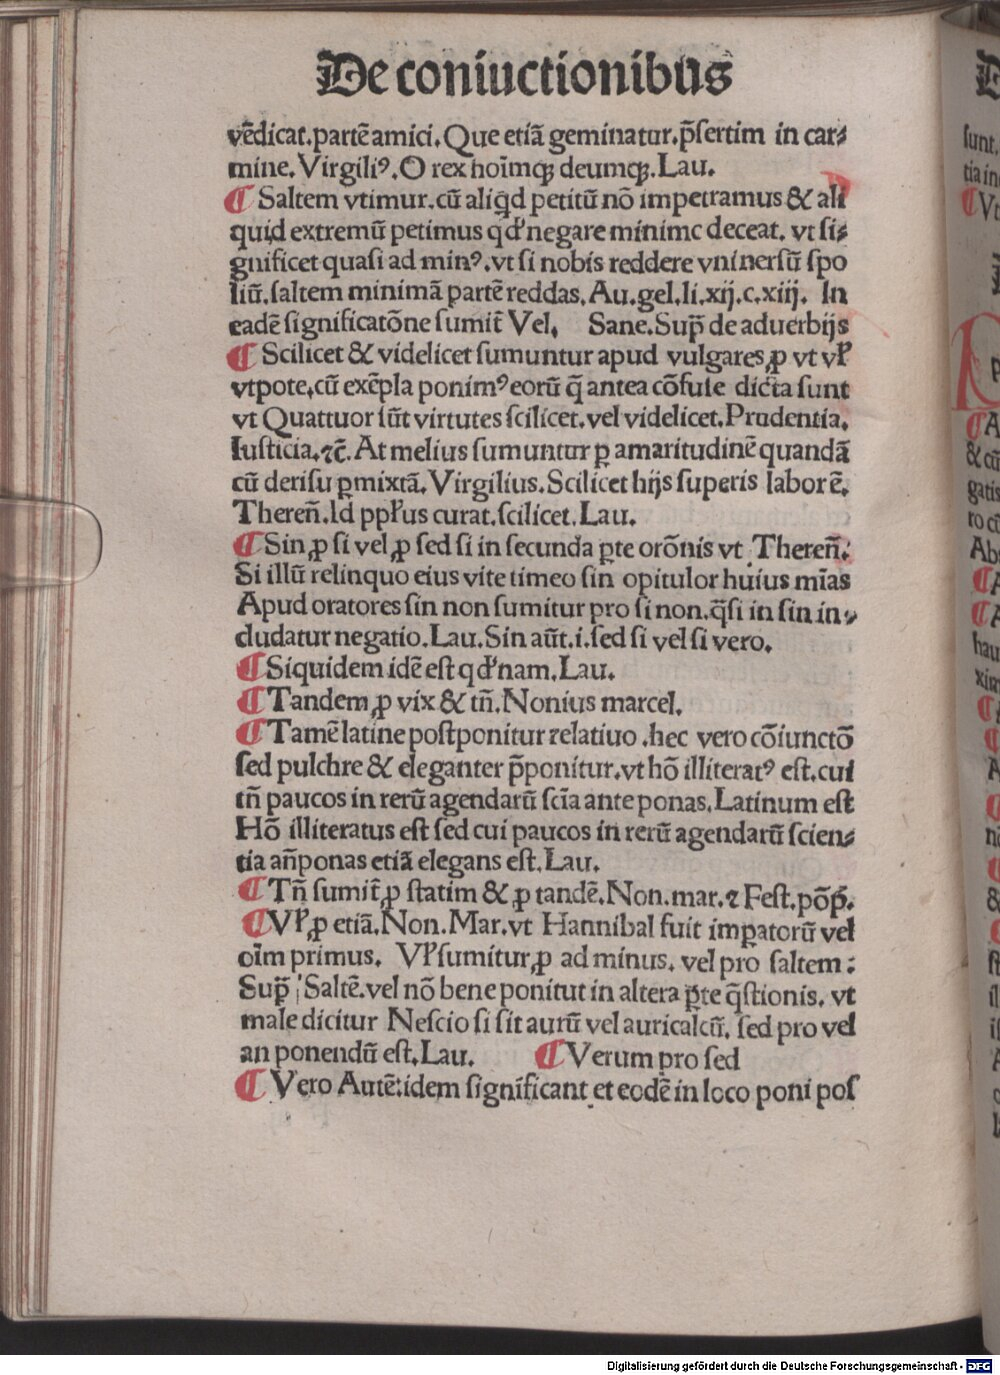 De coniuctionibus
vēdicat.partē amici.Que etiā geminatur.p̄sertim in car⸗
mine.Virgiliꝰ.O rex hoīmqꝫ deumqꝫ.Lau.
¶ Saltem vtimur.cū aliqd petitū nō impetramus & ali
quid extremū petimus qđ negare minime deceat. vt si⸗
gnificet quasi ad minꝰ.vt si nobis reddere vniuersū spo
liū.saltem minimā partē reddas.Au.gel.li.xij.c.xiij. In
eadē significatōne sumit̄ Vel. Sane.Sup̄ de aduerbijs
¶ Scilicet & videlicet sumuntur apud vulgares ꝓ vt vł
vtpote.cū exēpla ponimꝰ eorū q̄ antea cōfuse dicta sunt
vt Quattuor sūt virtutes scilicet.vel videlicet.Prudentia.
Iusticia.⁊c̄. At melius sumuntur ꝑ amaritudinē quandā
cū derisu ꝑmixtā.Virgilius.Scilicet hijs superis labor ē.
Thereñ.Id ppłus curat.scilicet.Lau.
¶ Sin ꝓ si vel ꝓ sed si in secunda ꝑte orōnis vt Thereñ.
Si illū relinquo eius vite timeo sin opitulor huius mīas
Apud oratores sin non sumitur pro si non.q̄si in sin in⸗
cludatur negatio.Lau.Sin aūt.i.sed si vel si vero.
¶ Siquidem idē est qđ nam.Lau.
¶ Tandem ꝓ vix & tñ.Nonius marcel.
¶ Tamē latine postponitur relatiuo .hec vero cōiunctō
sed pulchre & eleganter p̄ponitur.vt hō illiteratꝰ est.cui
tñ paucos in rerū agendarū scīa ante ponas.Latinum est
Hō illiteratus est sed cui paucos in rerū agendarū scien⸗
tia añponas etiā elegans est.Lau.
¶ Tñ sumit̄ ꝓ statim & ꝓ tandē.Non.mar.⁊ Fest.pōp̄.
¶ Vł ꝓ etiā.Non.Mar.vt Hannibal fuit imꝑatorū vel
oīm primus. Vł sumitur ꝓ ad minus. vel pro saltem :
Sup̄ Saltē.vel nō bene ponitut in altera ꝑte q̄stionis. vt
male dicitur Nescio si sit aurū vel auricalcū. sed pro vel
an ponendū est.Lau. ¶ Verum pro sed
¶ Vero Autē:idem significant et eodē in loco poni pos
sunt.
tia in
¶ Vt
& cū
gatis
ro
Abs
hau
xim
Digitalisierung gefördert durch die Deutsche Forschungsgemeinschaft - DFG